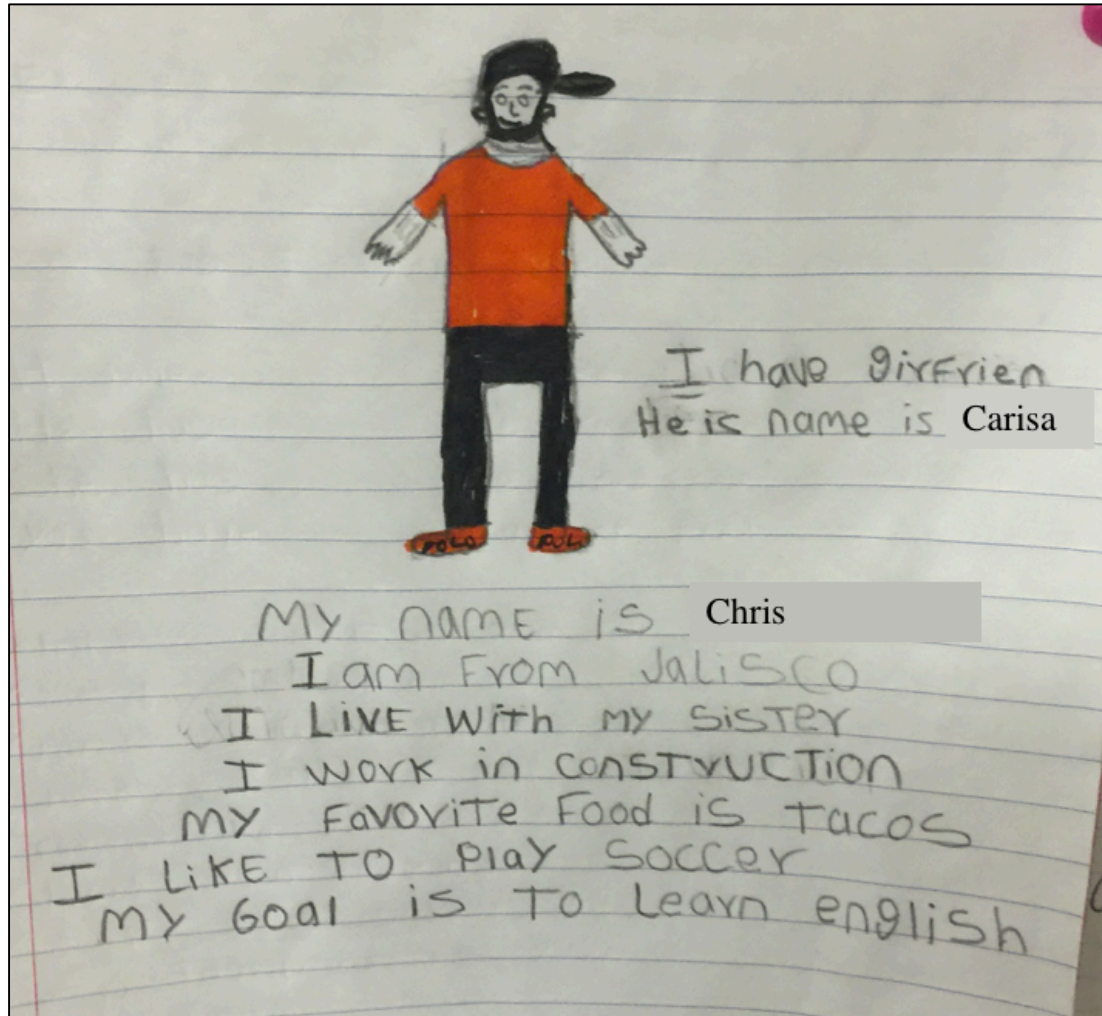 I have girfrien
He is name is Carisa
POLO POL
My name is Chris
I am From Jalisco
I LiVE With my SiSTEr
I work in conSTruCTion
my FavoriTe Food is Tacos
I LiKE TO Play Soccer
my Goal is To Learn english